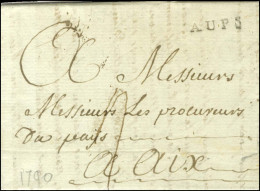 AUPS
A Messieurs
Messieurs Les procureurs
Du pays
a aix
1790